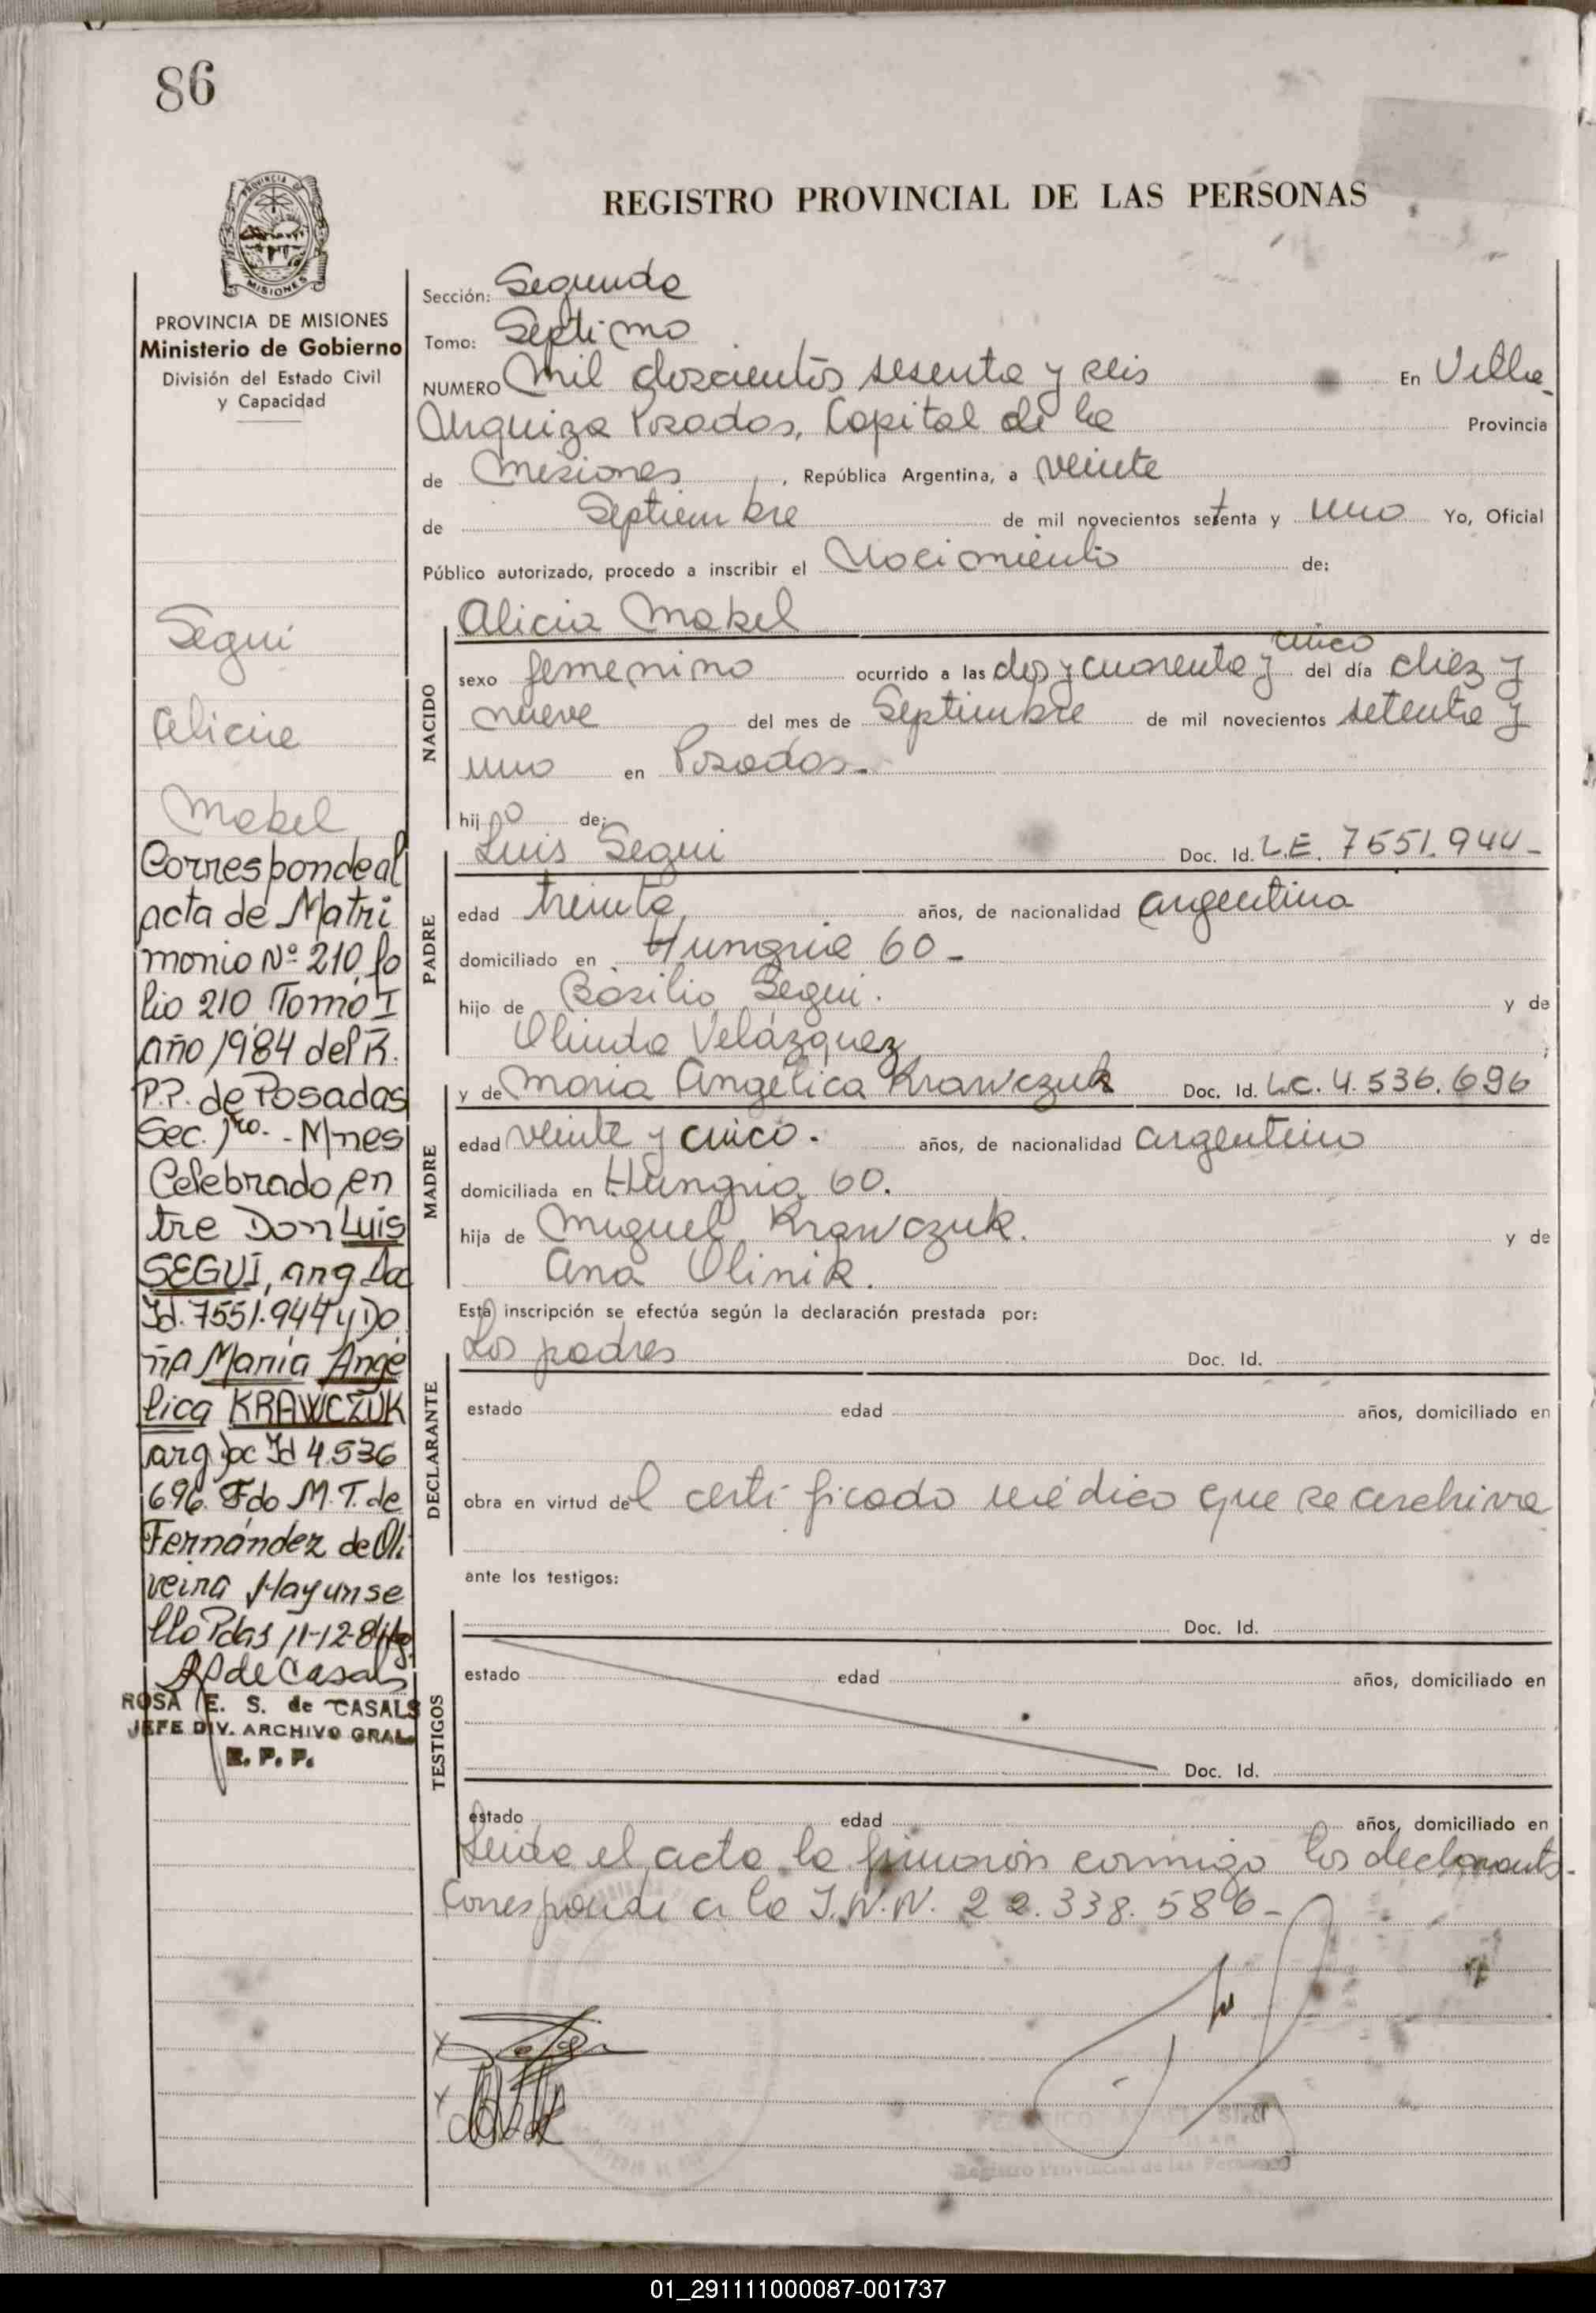 86
PROVINCIA DE
MISIONES
PROVINCIA DE MISIONES
Ministerio de Gobierno
División del Estado Civil
y Capacidad
Segui
Alicia
Mabel
Corresponde al
acta de Matri
monio Nº 210 fo
lio 210 Tomo I
año 1984 del R.
P.P. de Posadas
Sec. 1ro. - Mnes
Celebrado en
tre Don Luis
SEGUI, arg Doc
Id. 7551.944 y Do
ña María Ange
lica KRAWCZUK
arg Doc Id 4.536
696. Fdo M. T. de
Fernández de Oli
veira Hay un se
llo Pdas 11-12-84
ROSA E. S. de CASALS
JEFE DIV. ARCHIVO GRAL.
R. P. P.
REGISTRO PROVINCIAL DE LAS PERSONAS
Sección: Segunda
Tomo: Septimo
NUMERO Mil doscientos sesenta y seis En Villa
Urquiza Posadas, Capital de la Provincia
de Misiones, República Argentina, a veinte
de Septiembre de mil novecientos setenta y uno Yo, Oficial
Público autorizado, procedo a inscribir el Nacimiento de:
Alicia Mabel
NACIDO
cinco
sexo femenino ocurrido a las dos y cuarenta y del día diez y
nueve del mes de Septiembre de mil novecientos setenta y
uno en Posadas.-
hij a de:
PADRE
Luis Segui Doc. Id. L.E. 7551.944-
edad treinta años, de nacionalidad argentina
domiciliado en Hungria 60-
hijo de Basilio Segui. y de
Olinda Velázquez
MADRE
y de Maria Angélica Krawczuk Doc. Id. L.C. 4.536.696
edad veinte y cinco. años, de nacionalidad argentina
domiciliada en Hungria 60.
hija de Miguel Krawczuk. y de
Ana Olinik.
Esta inscripción se efectúa según la declaración prestada por:
DECLARANTE
Los padres Doc. Id.
estado edad años, domiciliado en
obra en virtud del certificado médico que se archiva
ante los testigos:
TESTIGOS
Doc. Id.
estado edad años, domiciliado en
Doc. Id.
estado edad años, domiciliado en
Leida el acta la firmaron conmigo los declarants.
Corresponde a la I.N.N. 22.338.586-
Registro Provincial de las Personas
01_291111000087-001737